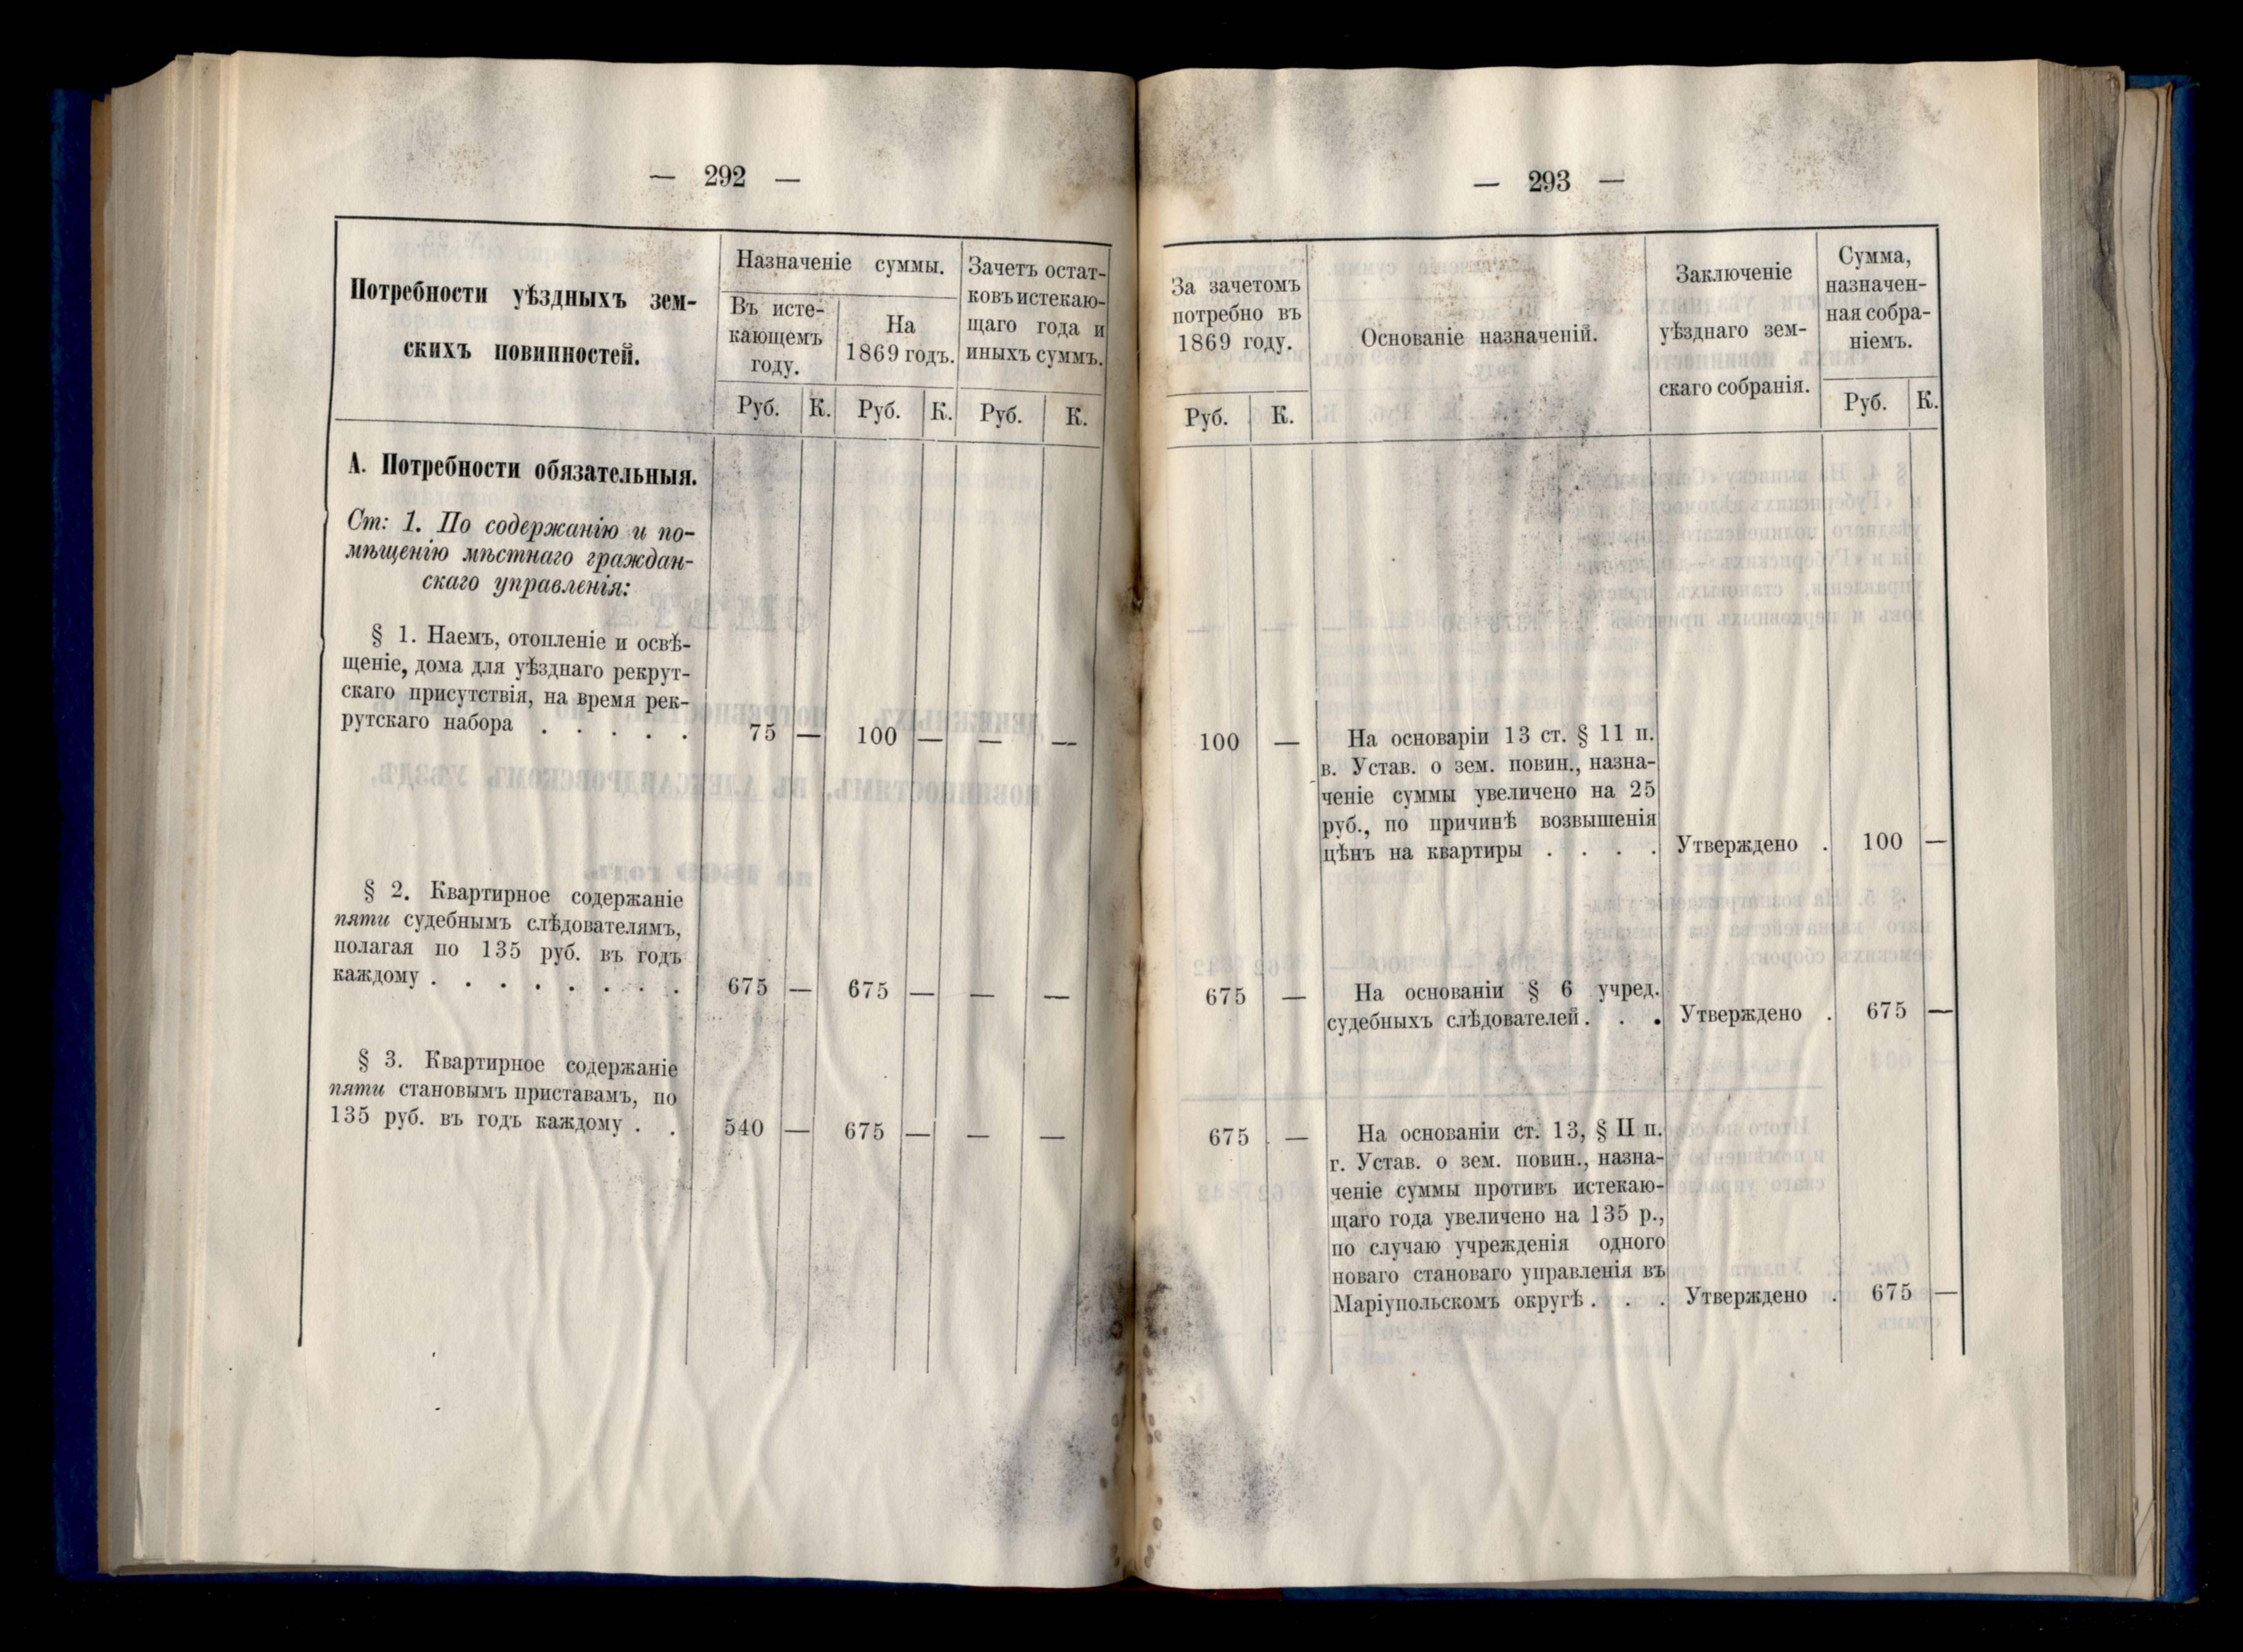 — 292 —
Потребности уѣздныхъ зем-
скихъ повинностей.
Назначеніе суммы.
Въ исте-
кающемъ
году.
На
1869 годъ.
Зачетъ остат-
ковъ истекаю-
щаго года и
иныхъ суммъ.
Руб. К. Руб. К. Руб. К.
А. Потребности обязательныя.
Ст: 1. По содержанію и по-
мѣщенію мѣстнаго граждан-
скаго управленія:
§ 1. Наемъ, отопленіе и освѣ-
щеніе, дома для уѣзднаго рекрут-
скаго присутствія, на время рек-
рутскаго набора . . . . . 75 — 100 — — —
§ 2. Квартирное содержаніе
пяти судебнымъ слѣдователямъ,
полагая по 135 руб. въ годъ
каждому . . . . . . . . 675 — 675 — — —
§ 3. Квартирное содержаніе
пяти становымъ приставамъ, по
135 руб. въ годъ каждому . . 540 — 675 — — —
— 293 —
За зачетомъ
потребно въ
1869 году.
Основаніе назначеній.
Заключеніе
уѣзднаго зем-
скаго собранія.
Сумма,
назначен-
ная собра-
ніемъ.
Руб. К. Руб. К.
100 — На основаріи 13 ст. § 11 п.
в. Устав. о зем. повин., назна-
ченіе суммы увеличено на 25
руб., по причинѣ возвышенія
цѣнъ на квартиры . . . . Утверждено . 100 —
675 — На основаніи § 6 учред.
судебныхъ слѣдователей . . . Утверждено . 675 —
675 — На основаніи ст. 13, § II п.
г. Устав. о зем. повин., назна-
ченіе суммы противъ истекаю-
щаго года увеличено на 135 р.,
по случаю учрежденія одного
новаго становаго управленія въ
Маріупольскомъ округѣ . . . Утверждено . 675 —